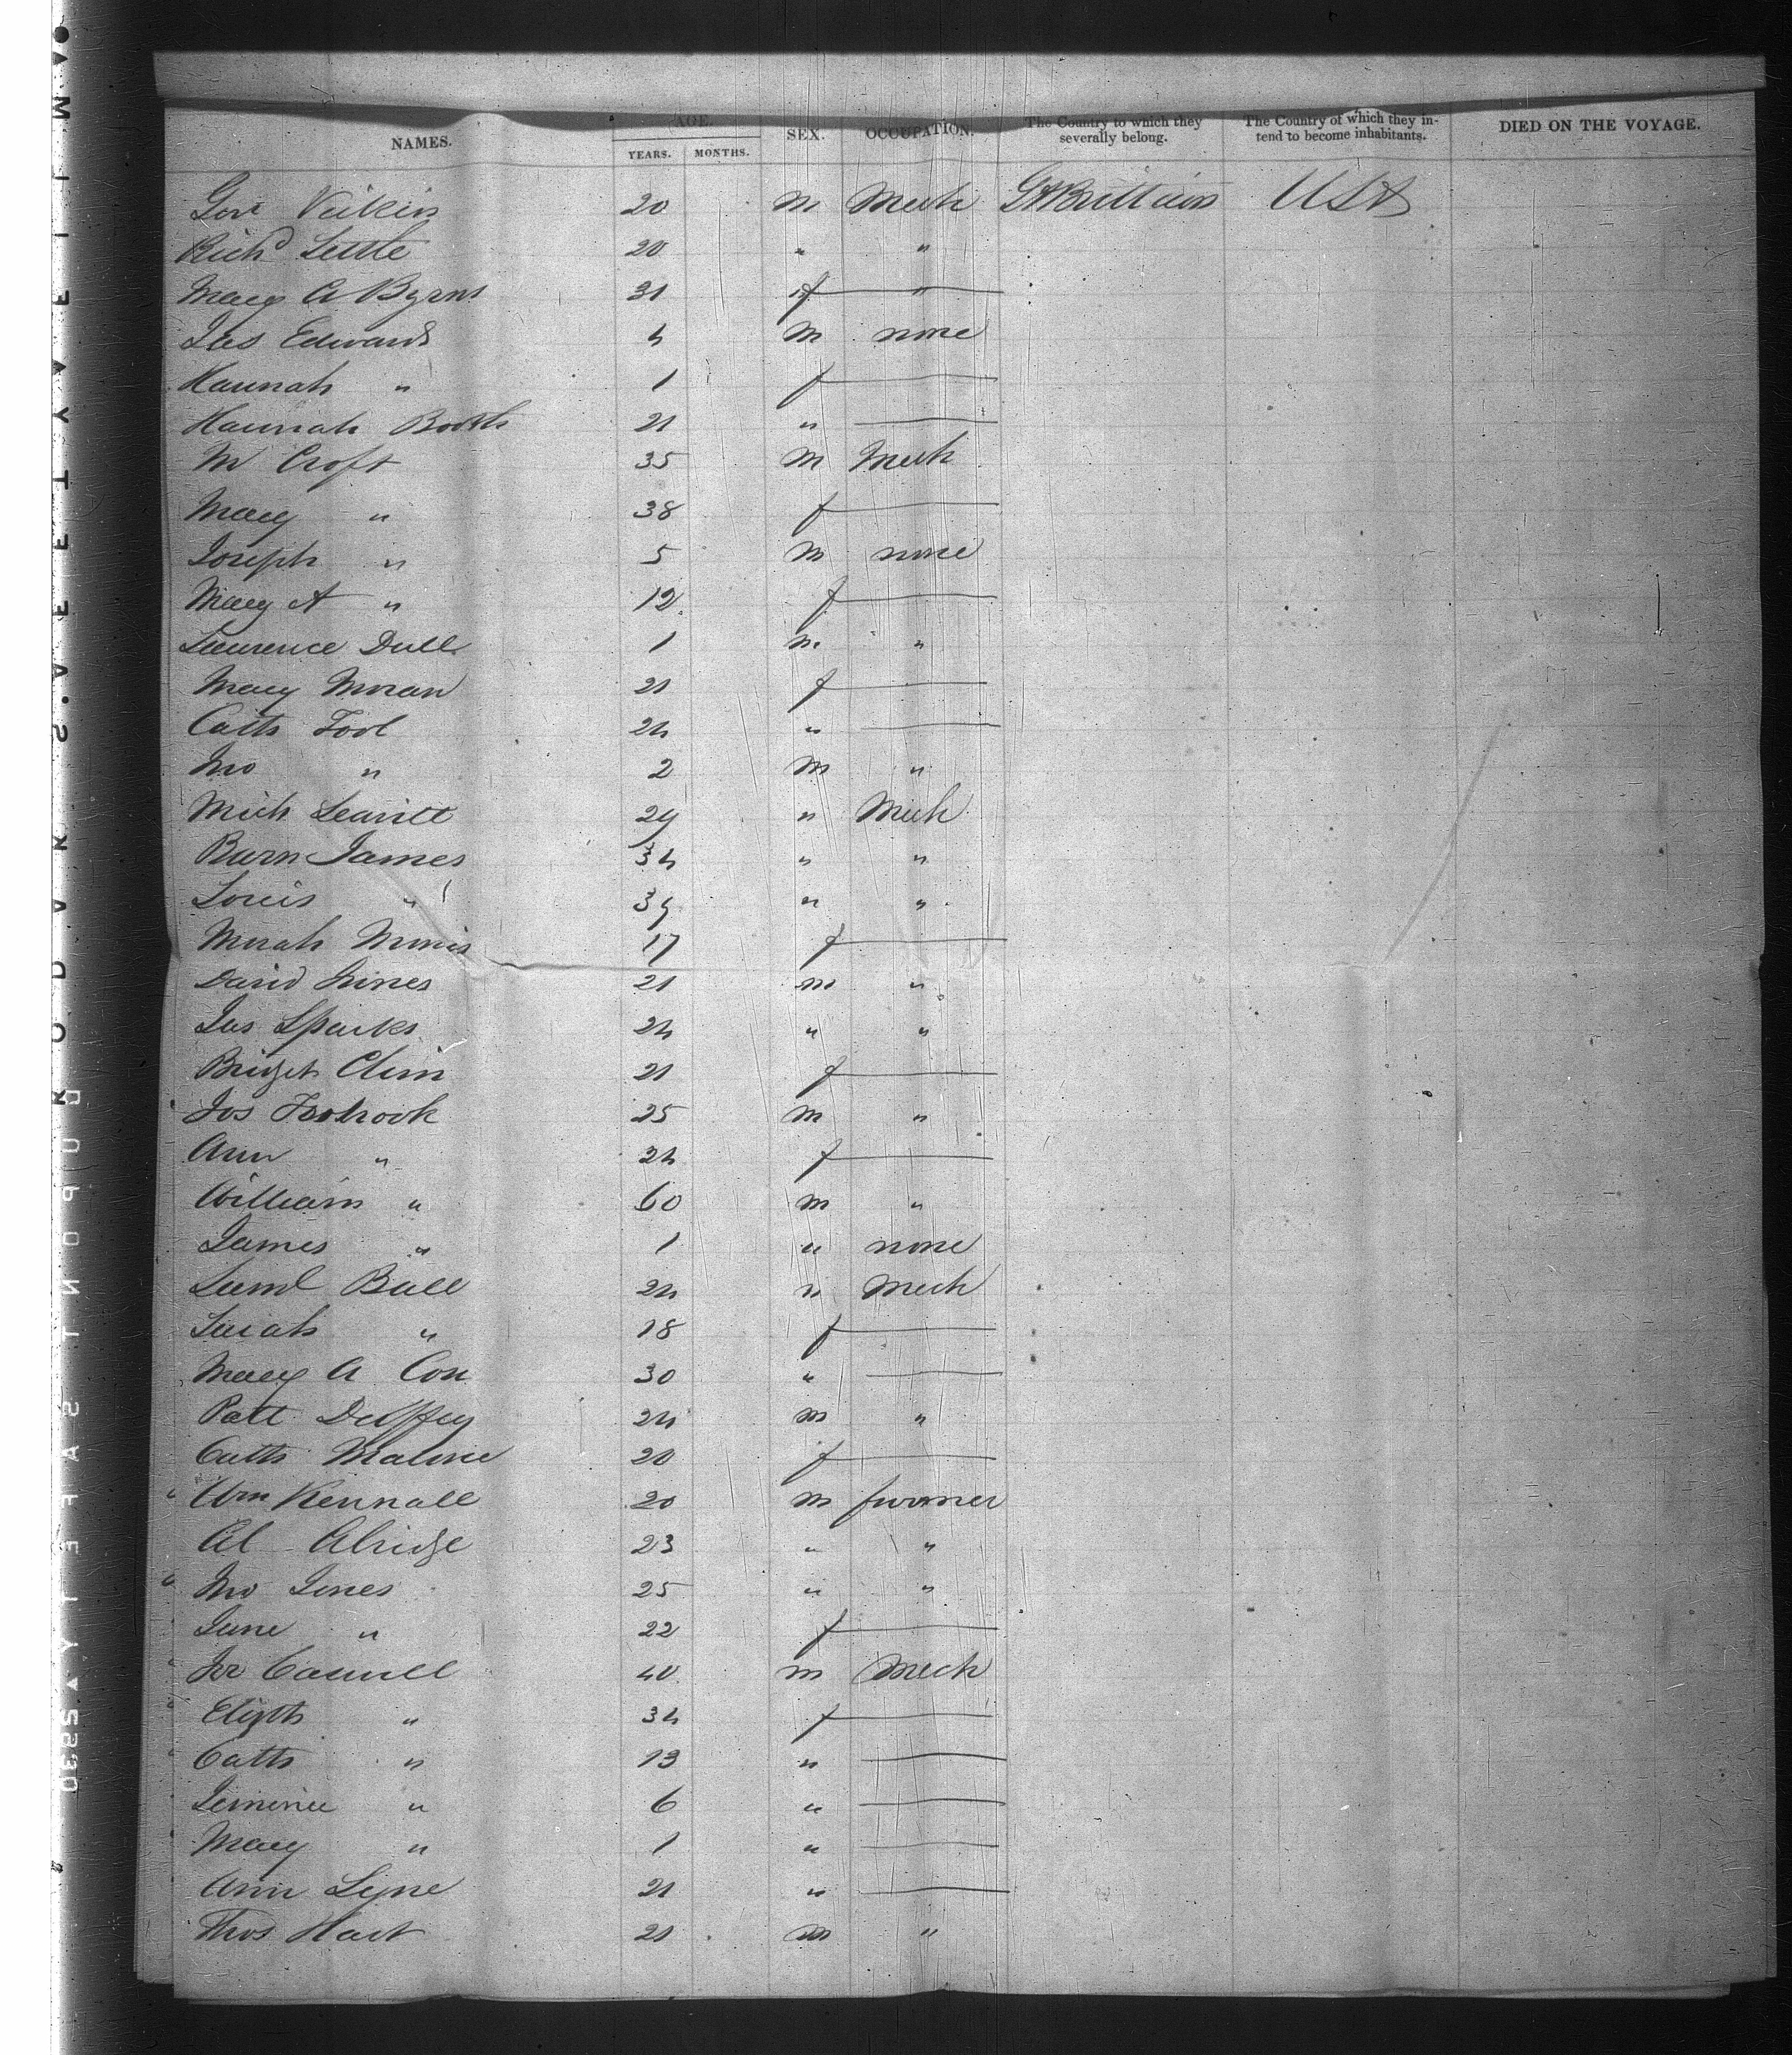 NAMES. AGE. YEARS. MONTHS. SEX. OCCUPATION. The Country to which they severally belong. The Country of which they intend to become inhabitants. DIED ON THE VOYAGE.
20 m Mech Gt Brittain USA
Richd Little 20 " "
Mary A Byrns 31 f "
Jas Edwards 4 m none
Hannah " 1 f
Hannah Booth 21 "
M Croft 35 m Mech
Mary " 38 f
Joseph " 5 m none
Mary A " 12 f
Laurence Dull 1 m "
Mary Moran 21 f
Cath Tool 24 "
Jno " 2 m "
Mich Leavitt 29 " Mech
Burn James 34 " "
Louis " 39 " "
Morris 17 f
David Hines 21 m "
Jas Sparks 24 " "
Bridget 21 f
Jos 25 m "
Ann " 24 f
William " 60 m "
James " 1 " none
Saml Ball 24 " Mech
Sarah " 18 f
Mary A Cox 30 "
Patt Duffey 24 m "
Cath Malone 20 f
Wm Kennall 20 m farmer
Al Alridge 23 " "
Jno Jones 25 " "
Jane " 22 f
40 m Mech
Elizth " 34 f
Cath " 13 "
" 6 "
Mary " 1 "
Ann Lyne 21 "
Thos Hart 21 m "